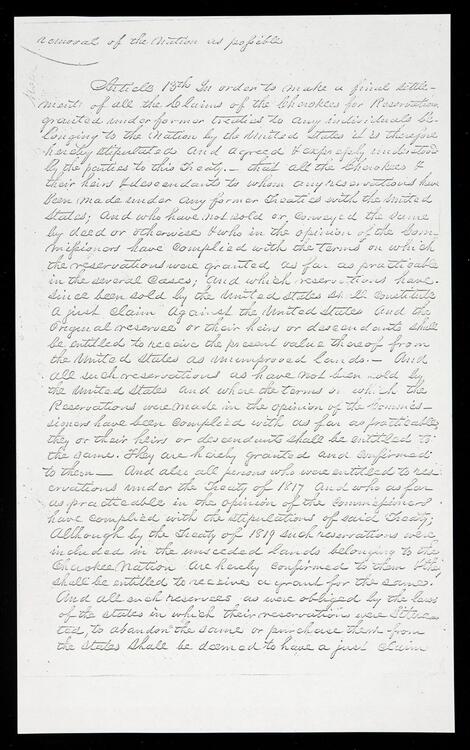 removal of the Nation as possible
Article 13th In order to make a final settle-
ment of all the Claims of the Cherokees for Reservations
granted under former treaties to any individuals be-
longing to the Nation by the United States it is therefore
hereby stipulated and agreed & expressly understood
by the parties to this Treaty — that all the Cherokees &
their heirs & descendants to whom any reservations have
been made under any former treaties with the United
States; And who have not sold or conveyed the same
by deed or otherwise & who in the opinion of the Com-
missioners have complied with the terms on which
the reservations were granted as far as practicable
in the several cases; and which reservations have
since been sold by the United States shall constitute
a just claim against the United States and the
original reservee or their heirs or descendants shall
be entitled to receive the present value thereof from
the United States as unimproved lands. — And
all such reservations as have not been sold by
the United States and where the terms on which the
Reservations were made in the opinion of the Commis-
sioners have been complied with as far as practicable,
they or their heirs or descendants shall be entitled to
the same. They are hereby granted and confirmed
to them — And also all persons who were entitled to res-
ervations under the Treaty of 1817 and who as far
as practicable in the opinion of the Commissioners
have complied with the stipulations of said Treaty;
Although by the Treaty of 1819 such reservations were
included in the unceded lands belonging to the
Cherokee Nation are hereby confirmed to them & they
shall be entitled to receive a grant for the same.
And all such reservees as were obliged by the laws
of the States in which their reservations were situa-
ted, to abandon the same or purchase them from
the States shall be deemed to have a just claim